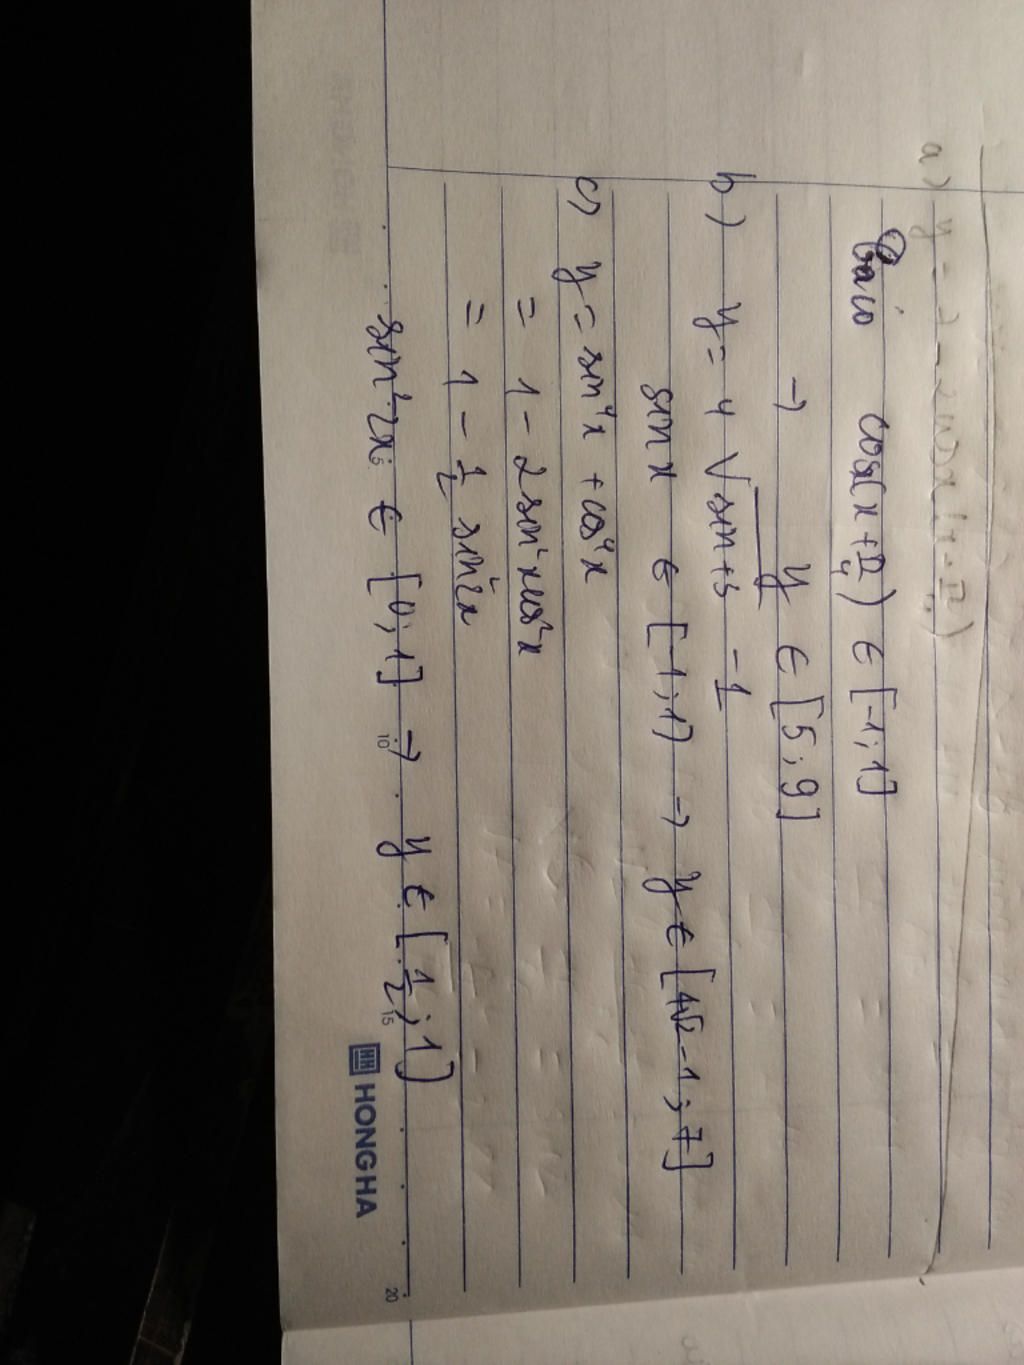 a) y = 7 - 2 cos(x + π/4)
cos(x + π/4) ∈ [-1; 1]
→ y ∈ [5; 9]
b) y = 4 √sin+3 - 1
sin x ∈ [-1; 1) → y ∈ [4√2 - 1; 7]
c) y = sin⁴x + cos⁴x
= 1 - 2sin²xcos²x
= 1 - 1/2 sin²2x
sin²2x ∈ [0; 1] → y ∈ [1/2; 1]
5 10 15 20
HH HONG HA